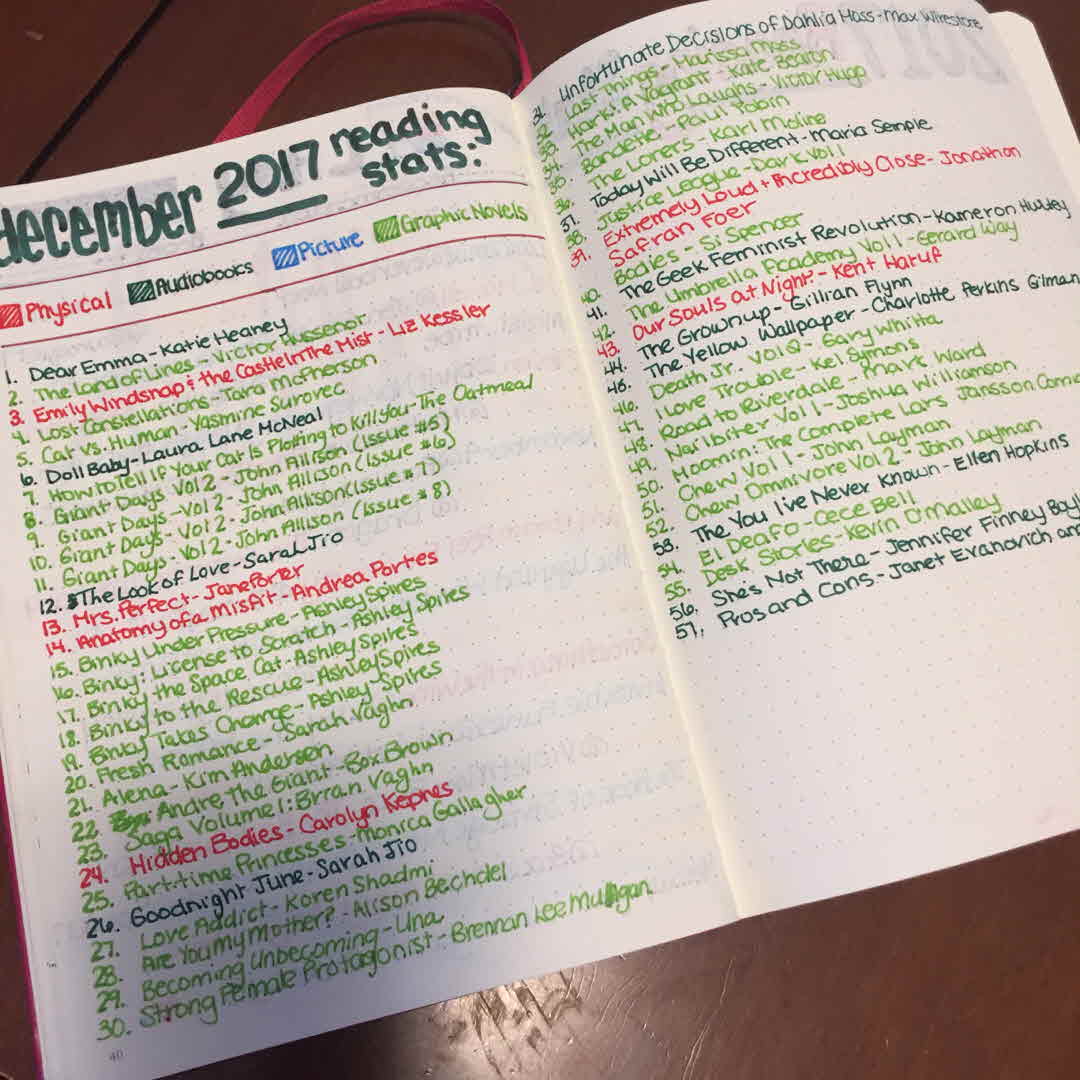 december 2017 reading
stats:
Physical Audiobooks Picture Graphic Novels
1. Dear Emma - Katie Heaney
2. The Land of Lines - Victor Hussenot
3. Emily Windsnap & the Castle In The Mist - Liz Kessler
4. Lost Constellations - Tara McPherson
5. Cat vs. Human - Yasmine Surovec
6. Doll Baby - Laura Lane McNeal
7. How to Tell if Your Cat Is Plotting to Kill you - The Oatmeal
8. Giant Days Vol 2 - John Allison (Issue #5)
9. Giant Days - Vol 2 - John Allison (Issue #6)
10. Giant Days - Vol 2 - John Allison (Issue #7)
11. Giant Days - Vol 2 - John Allison (Issue #8)
12. The Look of Love - Sarah Jio
13. Mrs. Perfect - Jane Porter
14. Anatomy of a Misfit - Andrea Portes
15. Binky Under Pressure - Ashley Spires
16. Binky: License to Scratch - Ashley Spires
17. Binky the Space Cat - Ashley Spires
18. Binky to the Rescue - Ashley Spires
19. Binky Takes Charge - Ashley Spires
20. Fresh Romance - Sarah Vaghn
21. Alena - Kim Andersen
22. Andre The Giant - Box Brown
23. Saga Volume 1: Brian Vaghn
24. Hidden Bodies - Carolyn Kepnes
25. Part-time Princesses - Monica Gallagher
26. Goodnight June - Sarah Jio
27. Love Addict - Koren Shadmi
28. Are You My Mother? - Alison Bechdel
29. Becoming Unbecoming - Una
30. Strong Female Protagonist - Brennan Lee Mulligan
40
31. Unfortunate Decisions of Dahlia Moss - Max Wirestone
32. Last Things - Marissa Moss
33. Hark! A Vagrant - Kate Beaton
34. The Man Who Laughs - Victor Hugo
35. Bandette - Paul Tobin
36. The Loners - Karl Moline
37. Today Will Be Different - Maria Semple
38. Justice League - Dark Vol 1
39. Extremely Loud + Incredibly Close - Jonathon
Safran Foer
40. Bodies - Si Spencer
41. The Geek Feminist Revolution - Kameron Hurley
42. The Umbrella Academy Vol 1 - Gerard Way
43. Our Souls at Night - Kent Haruf
44. The Grownup - Gillian Flynn
45. The Yellow Wallpaper - Charlotte Perkins Gilman
46. Death Jr. Vol 2 - Gary Whitta
47. I Love Trouble - Kel Symons
48. Road to Riverdale - Mark Ward
49. Nailbiter Vol 1 - Joshua Williamson
50. Moomin: The Complete Lars Jansson Comic
51. Chew Vol 1 - John Layman
52. Chew Omnivore Vol 2 - John Layman
53. The You I've Never Known - Ellen Hopkins
54. El Deafo - Cece Bell
55. Desk Stories - Kevin O'Malley
56. She's Not There - Jennifer Finney Boyl
57. Pros and Cons - Janet Evanovich an